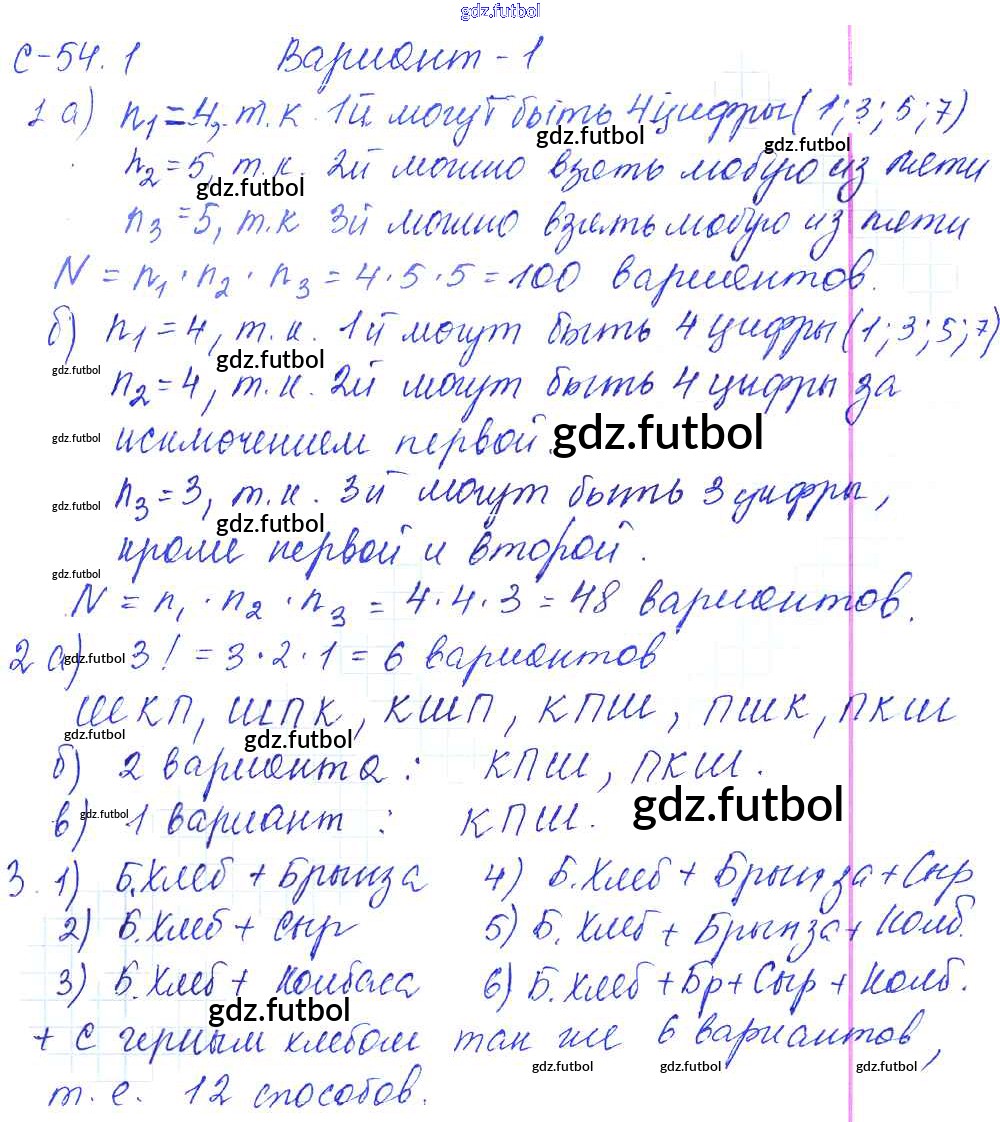 gdz.futbol
С-54.1 Вариант - 1
1 а) n1 = 4, т.к. 1й могут быть 4 цифры (1; 3; 5; 7)
gdz.futbol gdz.futbol
n2 = 5, т.к. 2й можно взять любую из пяти
gdz.futbol
n3 = 5, т.к 3й можно взять любую из пяти
N = n1 · n2 · n3 = 4 · 5 · 5 = 100 вариантов.
б) n1 = 4, т.к. 1й могут быть 4 цифры (1; 3; 5; 7)
gdz.futbol gdz.futbol
n2 = 4, т.к. 2й могут быть 4 цифры за
gdz.futbol исключением первой. gdz.futbol
gdz.futbol n3 = 3, т.к. 3й могут быть 3 цифры,
gdz.futbol
кроме первой и второй.
gdz.futbol
N = n1 · n2 · n3 = 4 · 4 · 3 = 48 вариантов.
2 а) gdz.futbol 3! = 3 · 2 · 1 = 6 вариантов
ШКП, ШПК, КШП, КПШ, ПШК, ПКШ
gdz.futbol gdz.futbol
б) 2 варианта: КПШ, ПКШ.
в) gdz.futbol 1 вариант: КПШ. gdz.futbol
3. 1) Б.Хлеб + Брынза 4) Б.Хлеб + Брынза + Сыр
2) Б.Хлеб + Сыр 5) Б.Хлеб + Брынза + Колб.
3) Б.Хлеб + Колбаса 6) Б.Хлеб + Бр + Сыр + Колб.
gdz.futbol
+ с черным хлебом так же 6 вариантов,
gdz.futbol gdz.futbol gdz.futbol
т.е. 12 способов.